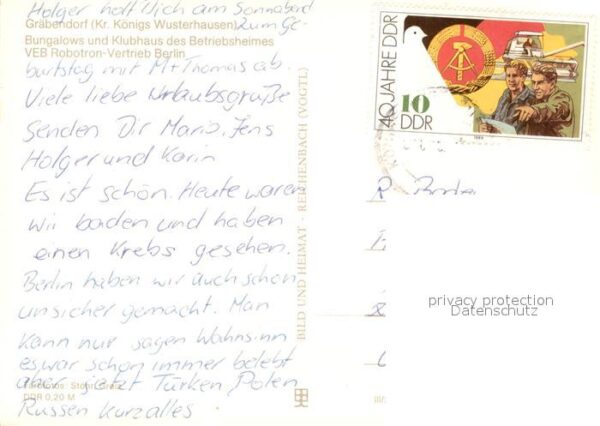 Holger holt Dich am Sonnabend
Gräbendorf (Kr. Königs Wusterhausen) zum Ge-
Bungalows und Klubhaus des Betriebsheimes
VEB Robotron-Vertrieb Berlin
burtstag mit M+Thomas ab.
Viele liebe Urlaubsgrüße
senden Dir Mario, Jens
Holger und Karin
Es ist schön. Heute waren
wir baden und haben
einen Krebs gesehen.
Berlin haben wir auch schon
unsicher gemacht. Man
kann nur sagen Wahnsinn
es war schon immer belebt
aber jetzt Türken, Polen
DDR 0,20 M
Russen kurz alles.
BILD UND HEIMAT · REICHENBACH (VOGTL)
40 JAHRE DDR
10
DDR
R
privacy protection
Datenschutz